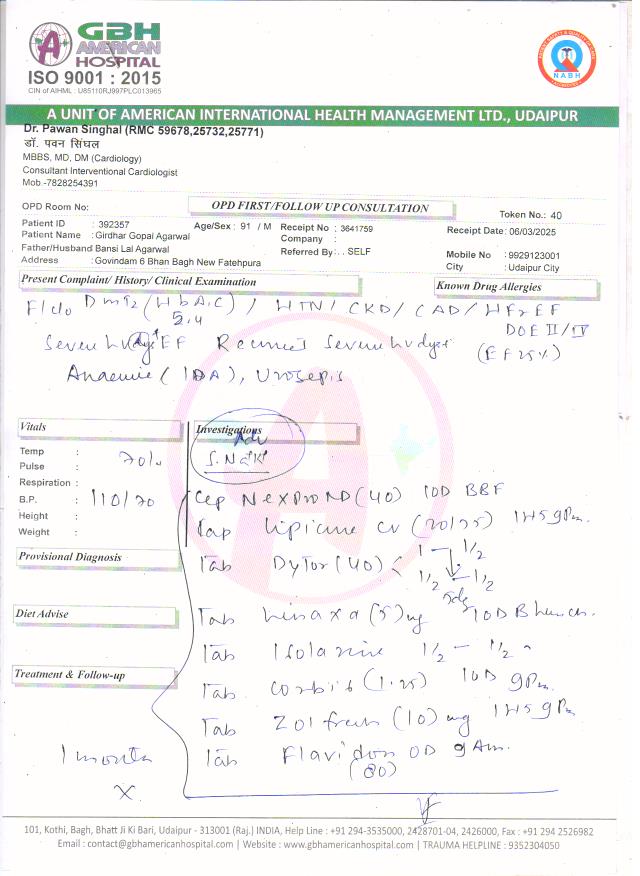 GBH
AMERICAN
HOSPITAL
ISO 9001 : 2015
CIN of AIHML : U85110RJ997PLC013965
NABH
A UNIT OF AMERICAN INTERNATIONAL HEALTH MANAGEMENT LTD., UDAIPUR
Dr. Pawan Singhal (RMC 59678,25732,25771)
डॉ. पवन सिंघल
MBBS, MD, DM (Cardiology)
Consultant Interventional Cardiologist
Mob -7828254391
OPD Room No:
OPD FIRST/FOLLOW UP CONSULTATION
Token No.: 40
Patient ID : 392357 Age/Sex : 91 / M Receipt No : 3641759 Receipt Date: 06/03/2025
Patient Name : Girdhar Gopal Agarwal Company :
Father/Husband Bansi Lal Agarwal Referred By : . . SELF Mobile No : 9929123001
Address : Govindam 6 Bhan Bagh New Fatehpura City : Udaipur City
Present Complaint/ History/ Clinical Examination Known Drug Allergies
DmT2 (HbA1C) / HTN / CKD / CAD / HFrEF
5.4 DOE II/IV
EF Severe (EF 25%)
Anaemia (IDA), Urosepsis
Vitals Investigations
Adv
Temp :
S. Na+/K+
Pulse : 70/
Respiration :
B.P. : 110/70
Height :
Weight :
Provisional Diagnosis
Diet Advise
Treatment & Follow-up
Cap Nexpro RD (40) 1OD BBF
(20/75) 1HS 9Pm.
Tab Dytor (40) 1 - 1/2
1/2 - 1/2
Tab (5) mg 1OD
Tab Isolazine 1/2 - 1/2
Tab Corbis (1.25) 1OD 9Pm
Tab Zolfresh (10) mg 1HS 9Pm
Tab Flavidon OD 9Am.
(80)
1 month
X
101, Kothi, Bagh, Bhatt Ji Ki Bari, Udaipur - 313001 (Raj.) INDIA, Help Line : +91 294-3535000, 2428701-04, 2426000, Fax : +91 294 2526982
Email : contact@gbhamericanhospital.com | Website : www.gbhamericanhospital.com | TRAUMA HELPLINE : 9352304050